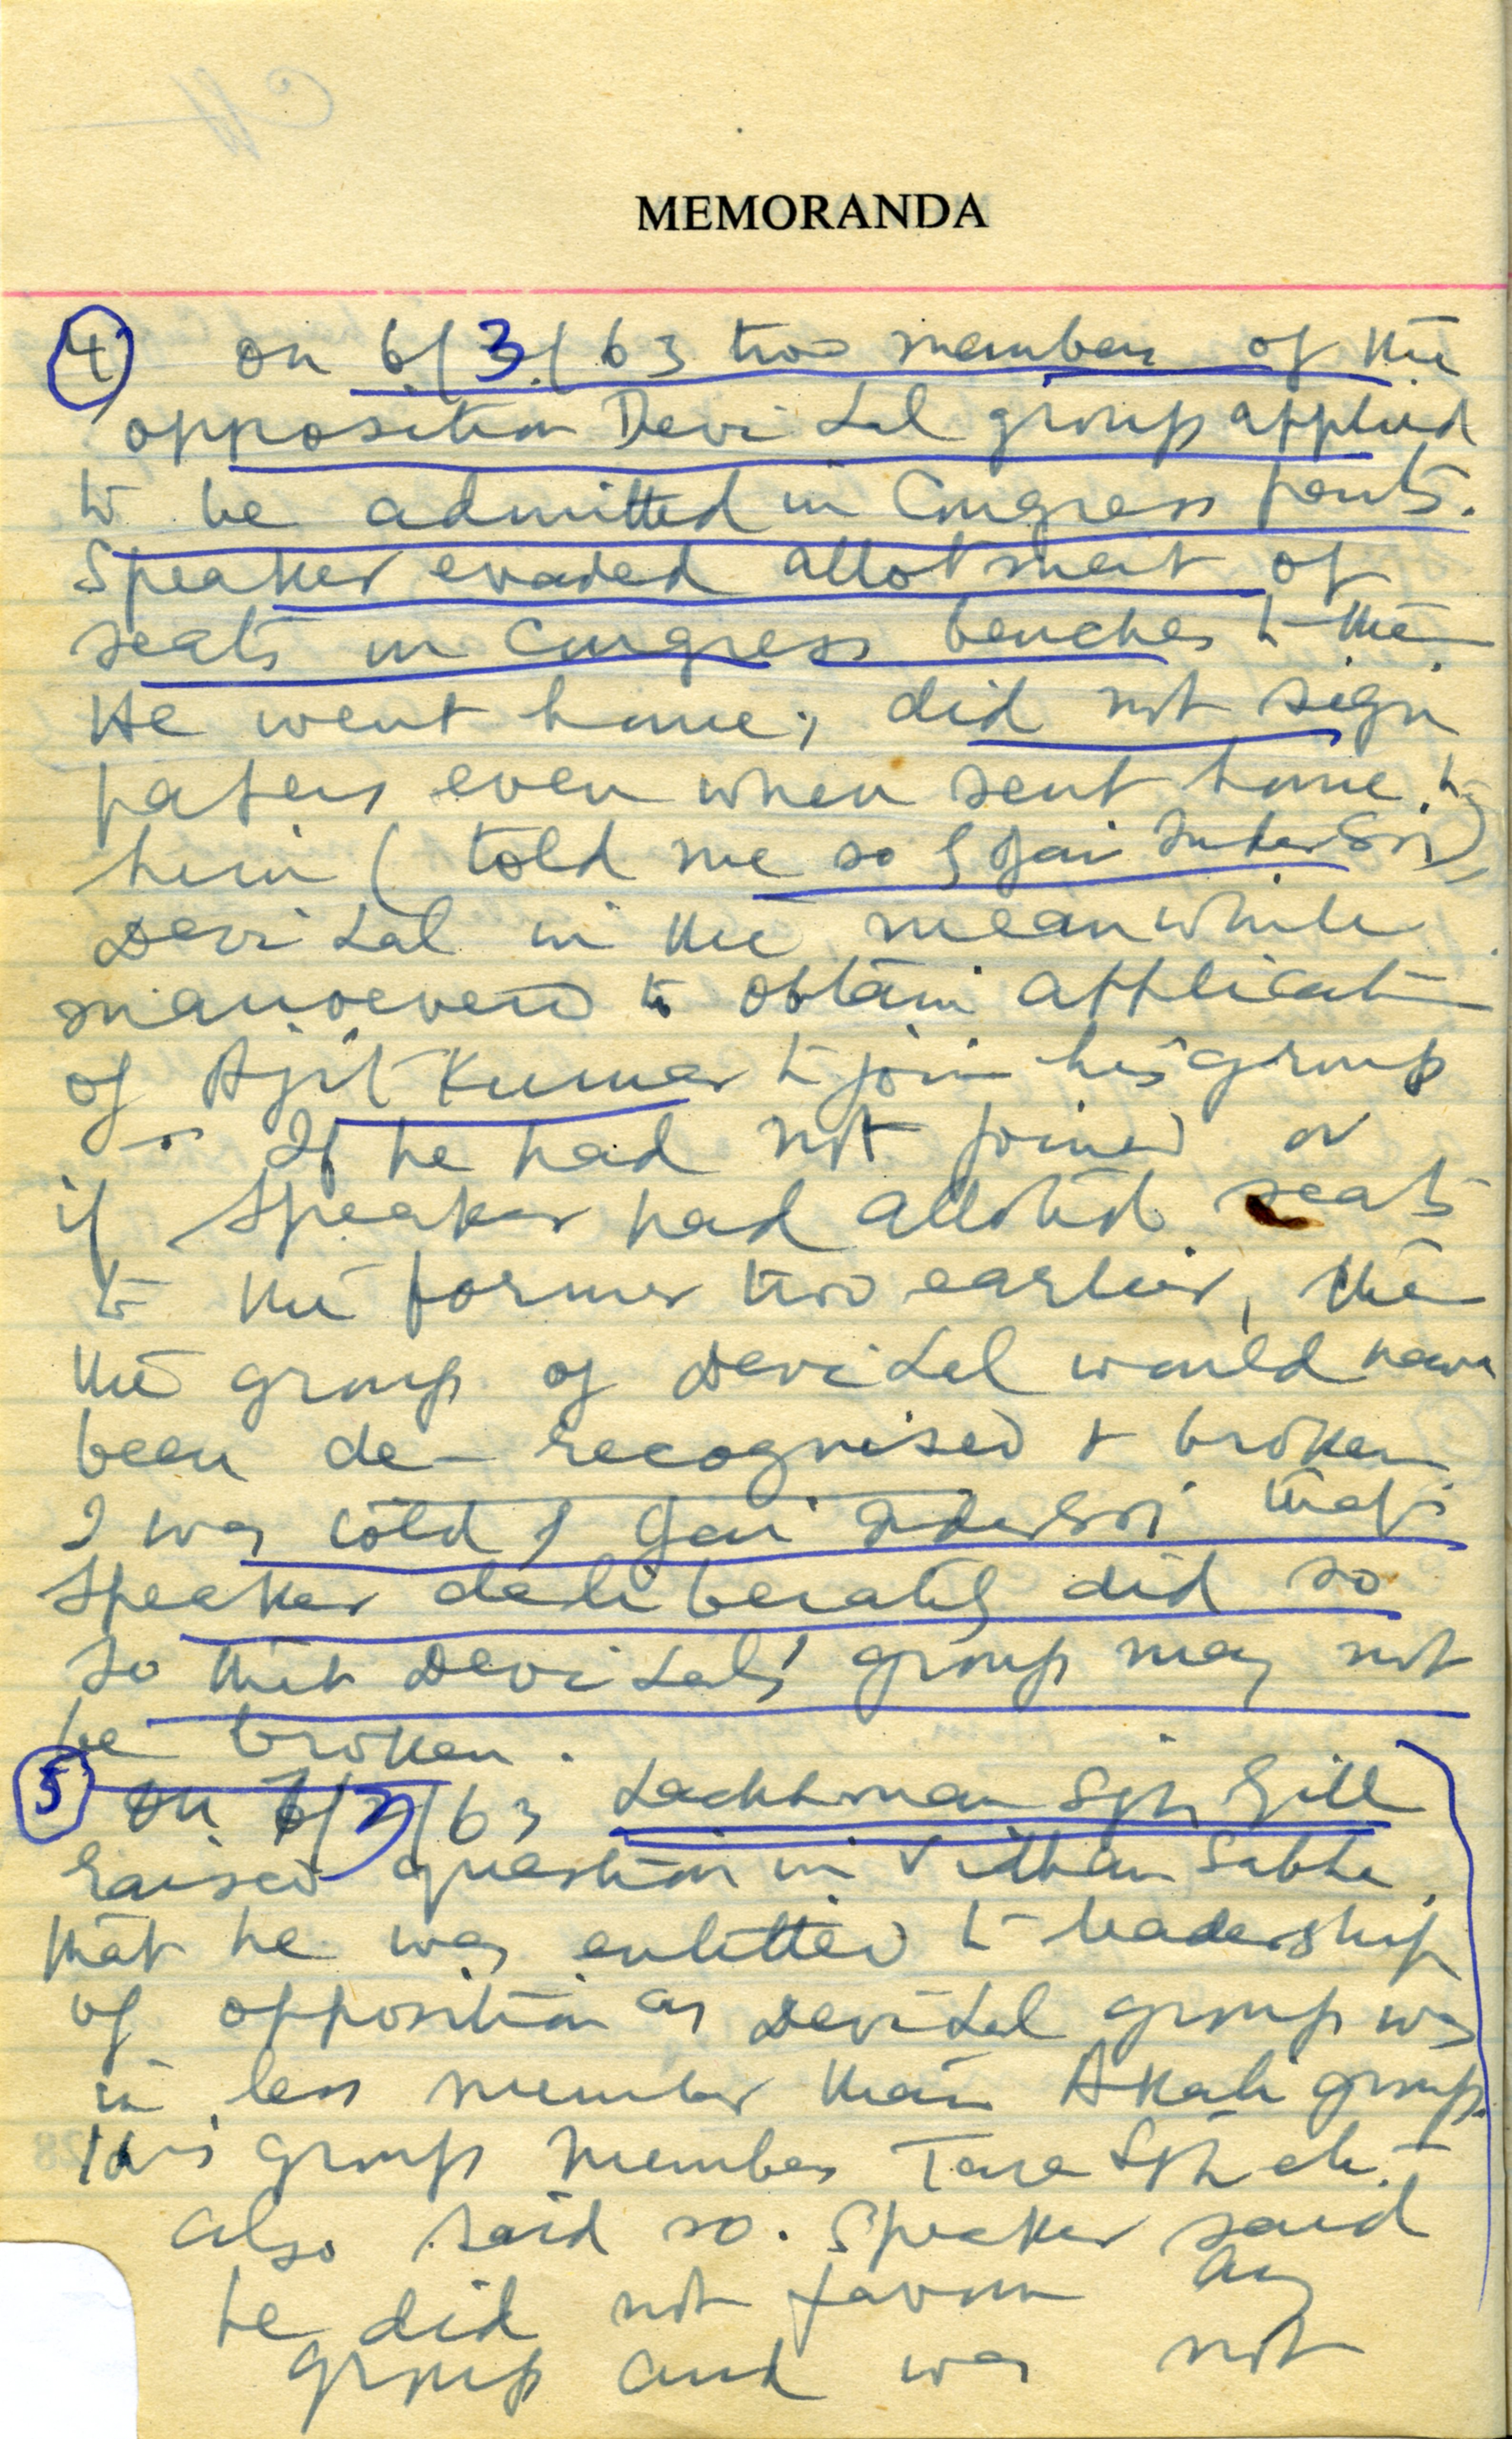 MEMORANDA
④ On 6/3/63 two members of the
opposition Devi Lal group applied
to be admitted in Congress party.
Speaker evaded allotment of
seats in Congress benches to them
He went home, did not sign
papers even when sent home to
him (told me so by Jai Inder Singh)
Devi Lal in the meanwhile
manoevered to obtain application
of Ajit Kumar to join his group
If he had not joined or
if Speaker had allotted seats
to the former two earlier, then
the group of Devi Lal would have
been de-recognised & broken
I was told by Jai Inder Singh that
Speaker deliberately did so
so that Devi Lal's group may not
be broken.
⑤ On /3/63 Lachhman Sgh Gill
raised question in Vidhan Sabha
that he was entitled to leadership
of opposition as Devi Lal group was
in less number than Akali group.
His group member Tara Sgh etc.
also said so. Speaker said
he did not favour any
group and was not